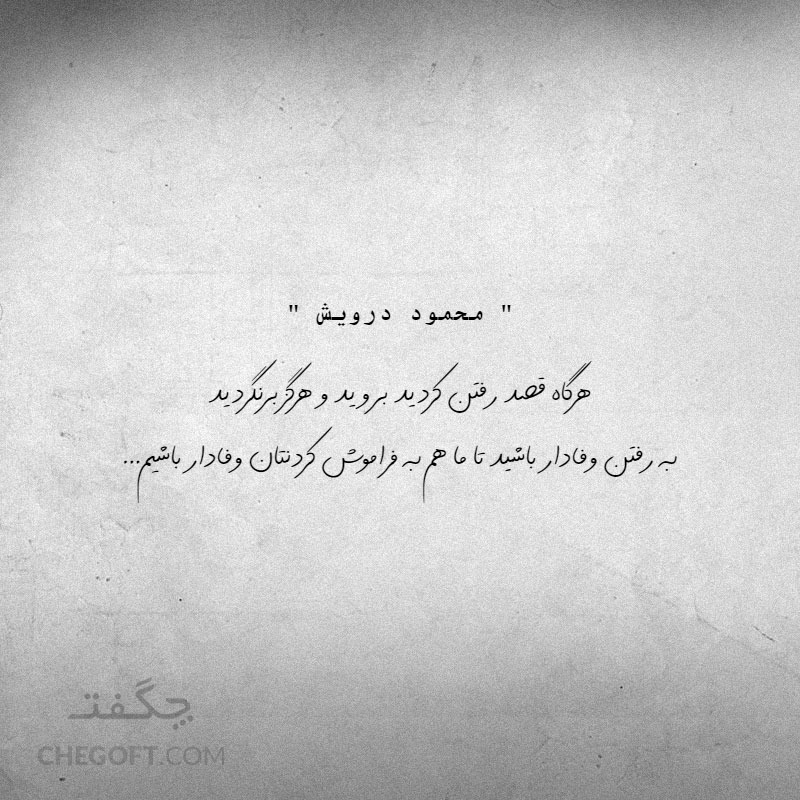 " محمود درویش "
هرگاه قصد رفتن کردید بروید و هرگز برنگردید
به رفتن وفادار باشید تا ما هم به فراموش کردنتان وفادار باشیم...
چگفت
CHEGOFT.COM